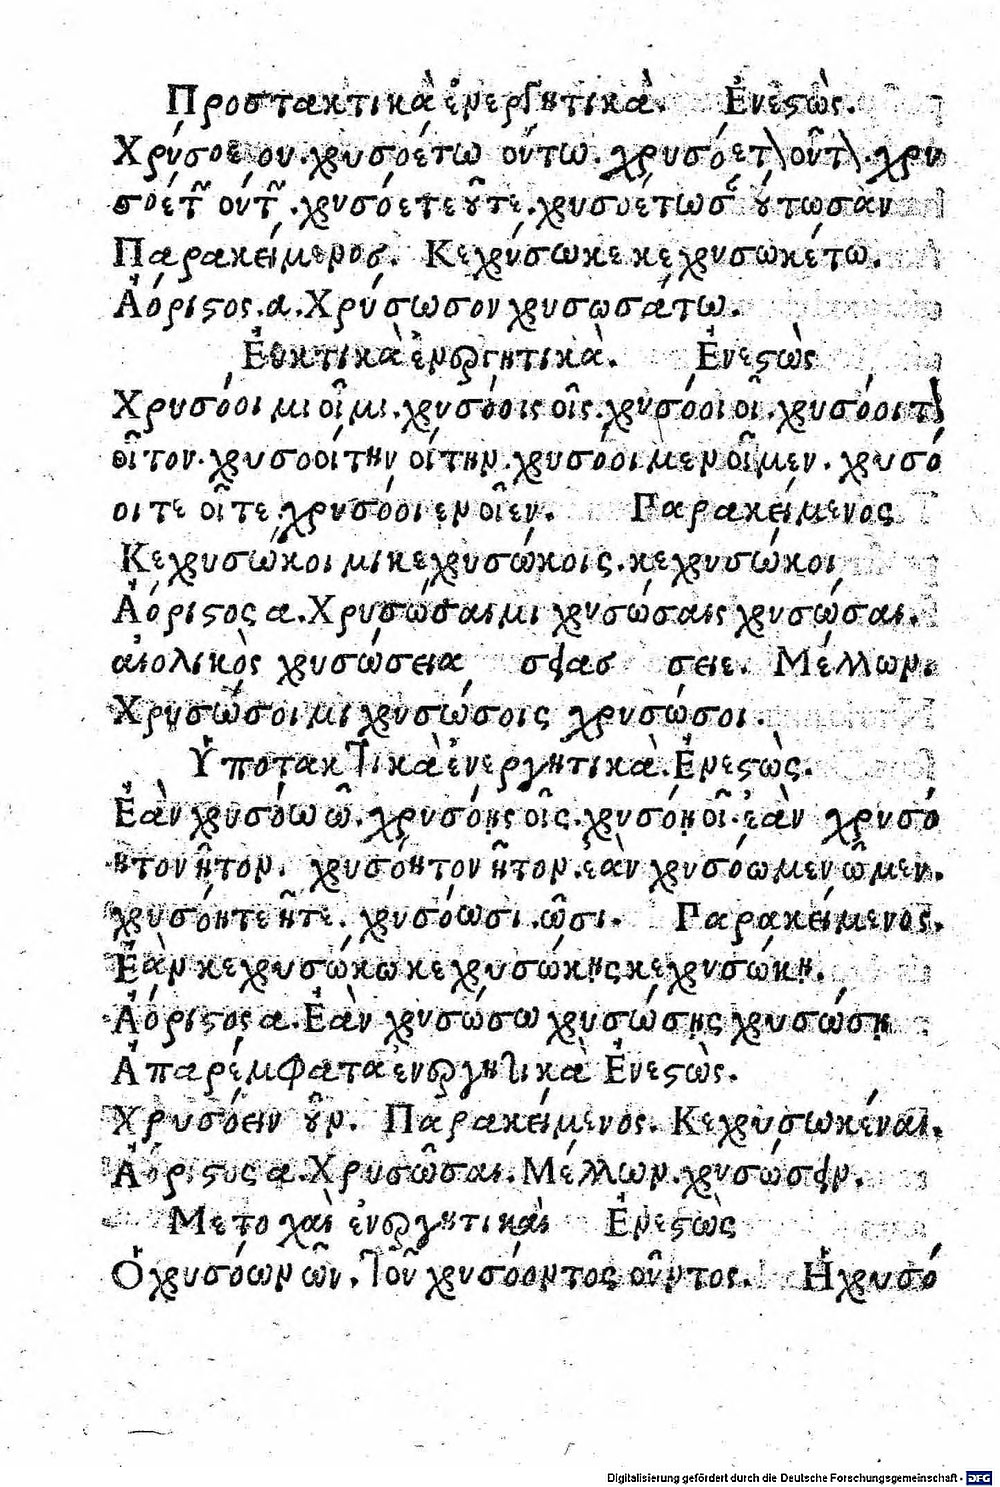 Προστακτικὰ ἐνεργητικὰ. Ἐνεστὼς.
Χρύσοε ου. χρυσοέτω ούτω. χρυσόετ οῦτ. χρυ
σοέτ ούτ. χρυσόετε οῦτε. χρυσοέτωσ ούτωσαν
Παρακείμενος. Κεχρύσωκε κεχρυσωκέτω.
Ἀόριστος. α. Χρύσωσον χρυσωσάτω.
Ἐυκτικὰ ἐνεργητικὰ. Ἐνεστὼς
Χρυσόοιμι οῖμι. χρυσόοις οῖς. χρυσόοι οῖ. χρυσόοιτ
οῖτον. χρυσοοίτην οίτην. χρυσόοιμεν οῖμεν. χρυσό
οιτε οῖτε. χρυσόοιεν οῖεν. Παρακείμενος
Κεχρυσώκοιμι κεχρυσώκοις. κεχρυσώκοι
Ἀόριστος α. Χρυσώσαιμι χρυσώσαις χρυσώσαι.
αἰολικὸς χρυσώσεια σειασ σειε. Μέλλων.
Χρυσώσοιμι χρυσώσοις χρυσώσοι.
Ὑποτακτικὰ ἐνεργητικὰ. Ἐνεστὼς.
Ἐὰν χρυσόω ῶ. χρυσόῃς οῖς. χρυσόῃ οῖ. ἐὰν χρυσό
ητον ῆτον. χρυσόητον ῆτον. ἐὰν χρυσόωμεν ῶμεν.
χρυσόητε ῆτε. χρυσόωσι. ῶσι. Παρακείμενος.
Ἐὰν κεχρυσώκω κεχρυσώκῃς κεχρυσώκῃ.
Ἀόριστος α. Ἐὰν χρυσώσω χρυσώσῃς χρυσώσῃ
Ἀπαρέμφατα ἐνεργητικὰ Ἐνεστὼς.
Χρυσόειν οῦν. Παρακείμενος. Κεχρυσωκέναι.
Ἀόριστος α. Χρυσῶσαι. Μέλλων. χρυσώσειν.
Μετοχαὶ ἐνεργητικαὶ Ἐνεστὼς
Ὁ χρυσόων ῶν. Τοῦ χρυσόοντος οῦντος. Ἡ χρυσό
Digitalisierung gefördert durch die Deutsche Forschungsgemeinschaft - DFG